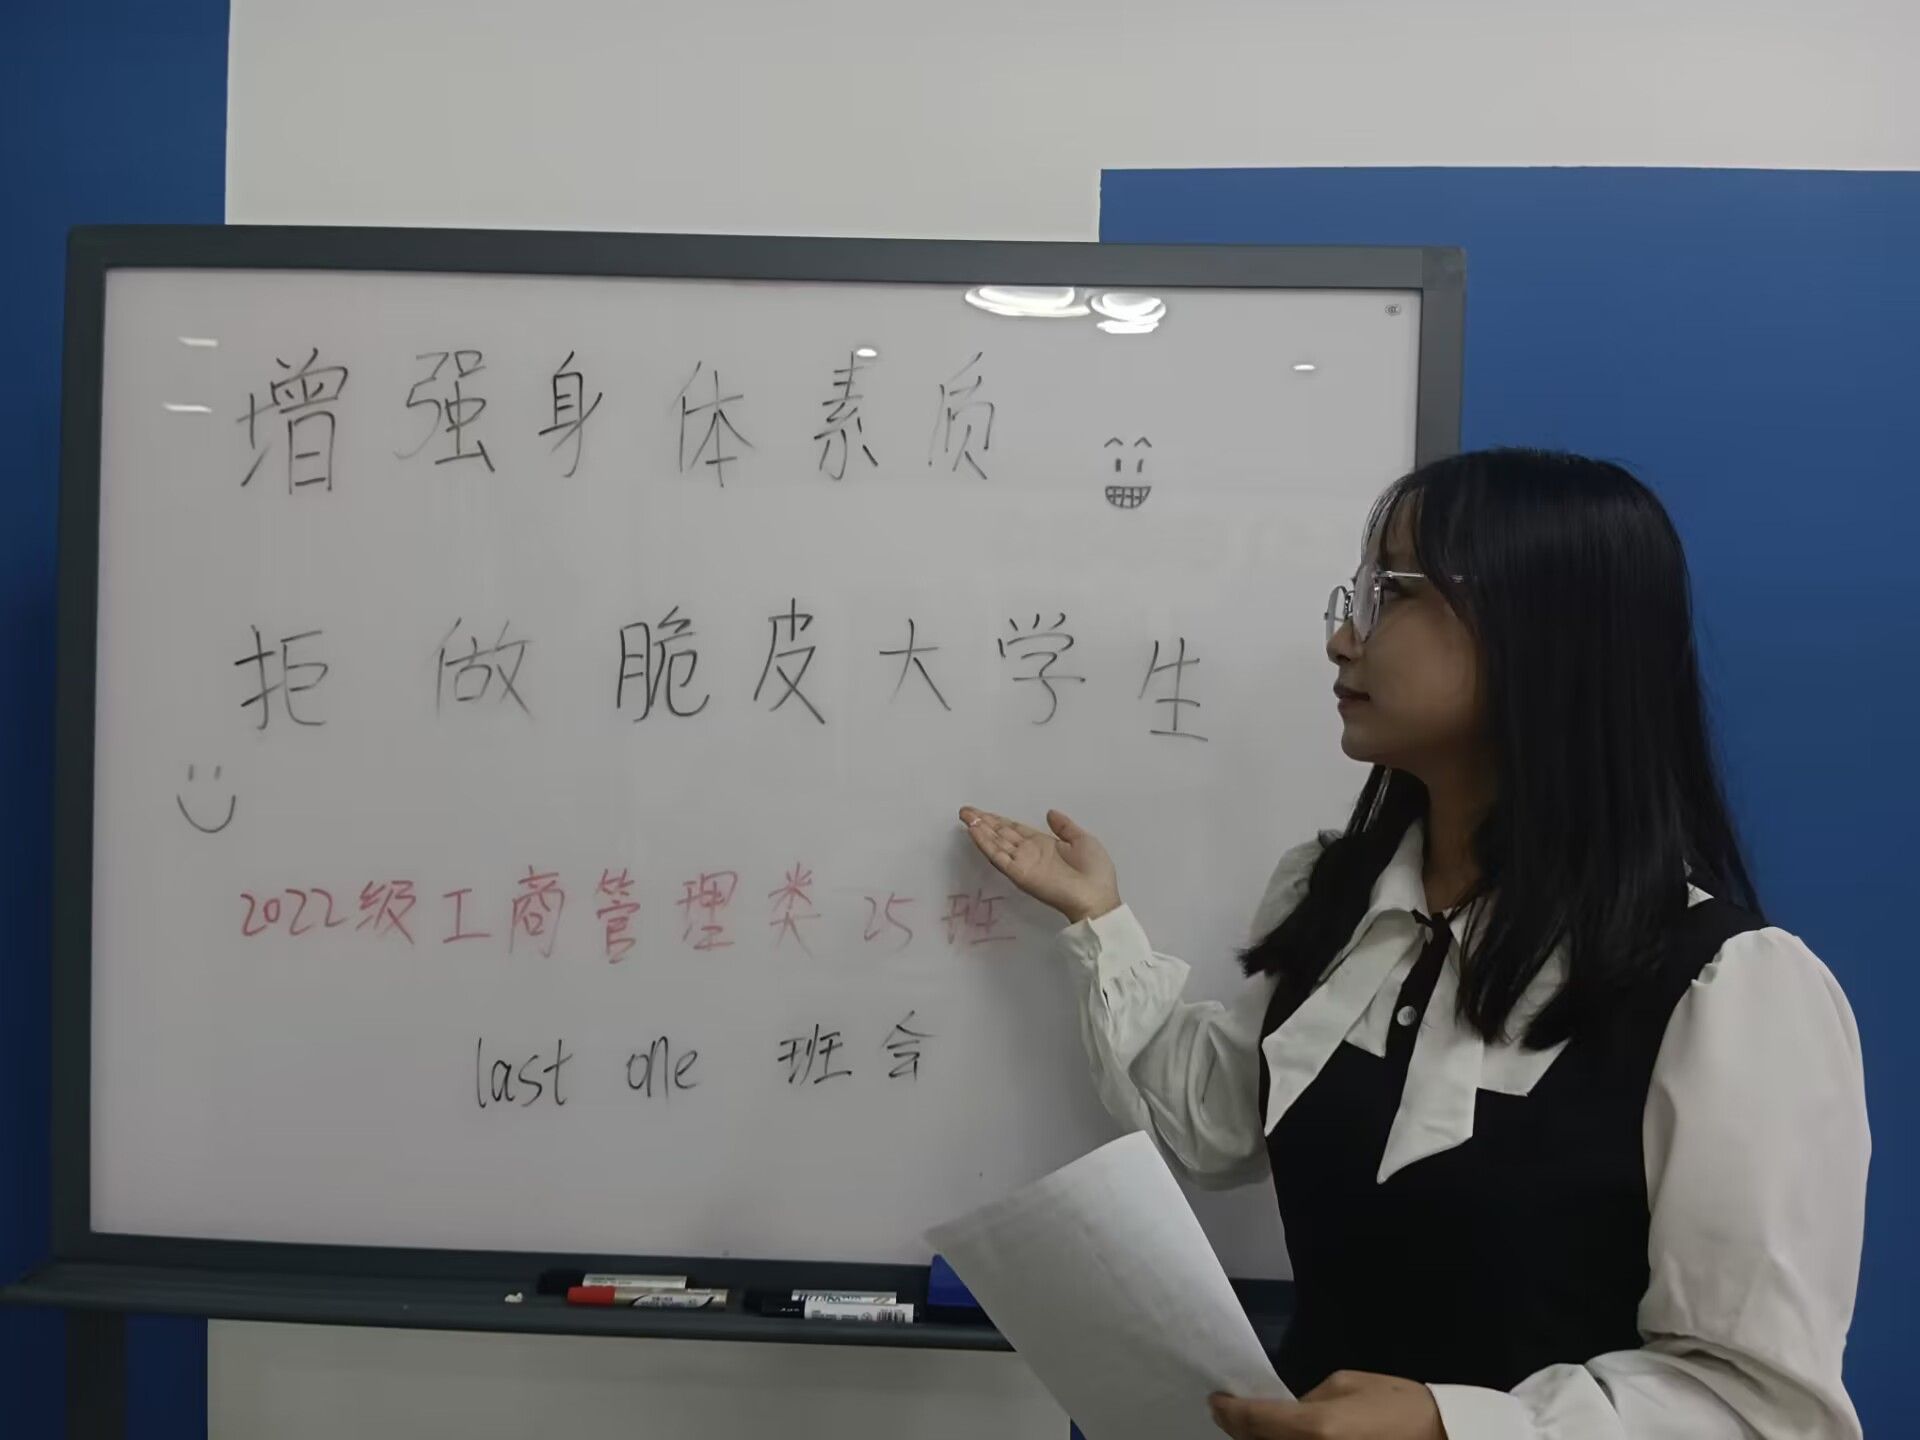 增强身体素质
拒做脆皮大学生
2022级工商管理类25班
last one 班会